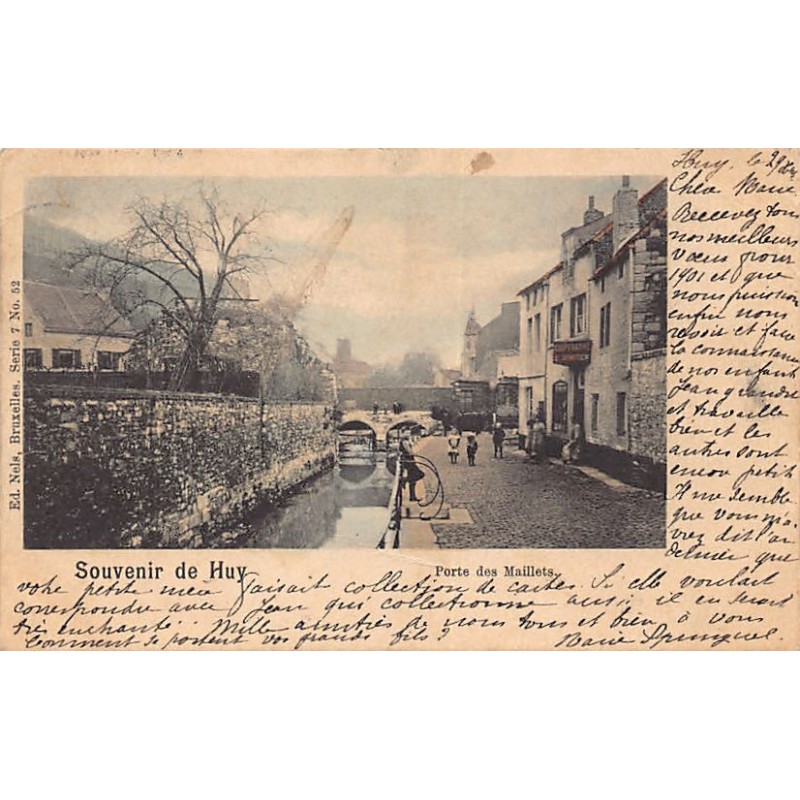 Huy, le 29
Chère Marie
Recevez tous
nos meilleurs
vœux pour
1901 et que
nous puission
enfin nous
revoir et faire
la connaissance
de nos enfant
Jean grandit
et travaille
bien et les
autres sont
encor petit
Il me semble
que vous m'a-
vrez dit l'an
dernier que
Ed. Nels, Bruxelles. Serie 7 No. 52
Souvenir de Huy
Porte des Maillets.
votre petite faisait collection de cartes. Si elle voulait
correspondre avec Jean qui collectionne aussi, il en serait
très enchanté. Mille amitiés de nous tous et bien à vous
Comment se portent vos grands fils? Marie